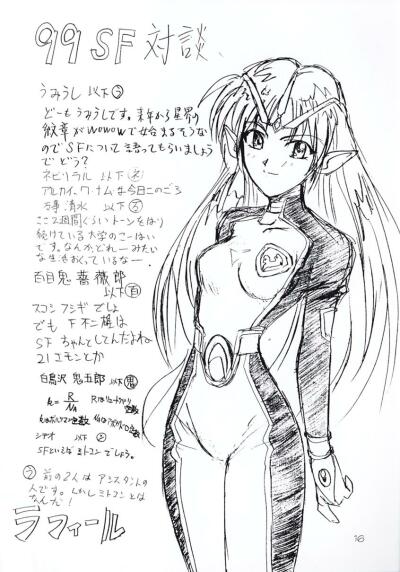 99 SF 対談、
うみうし 以下う
どーもうみうしです。来年から星界の
紋章がWOWOWで始まるそうな
のでSFについて語ってもらいましょう
で どう？
ネビリラル 以下
アルカイック・ナム 今日このごろ
清水 以下
ここ2週間ぐらいトーンをはり
続けている大学のこーはい
です。なんか、どれーみたい
な生活おくっているなー．
百目鬼薔薇郎
以下百
スコシ フシギ でしょ
でも F不二雄は
SF ちゃんとしてんだよね
21エモンとか
白鳥沢 鬼五郎 以下鬼
k= R/NA
シデオ 以下シ
SFといえばミトコンでしょう。
う 前の2人は アシスタントの
人です。しかしミトコンとは
なんだ！
ラフィール
16